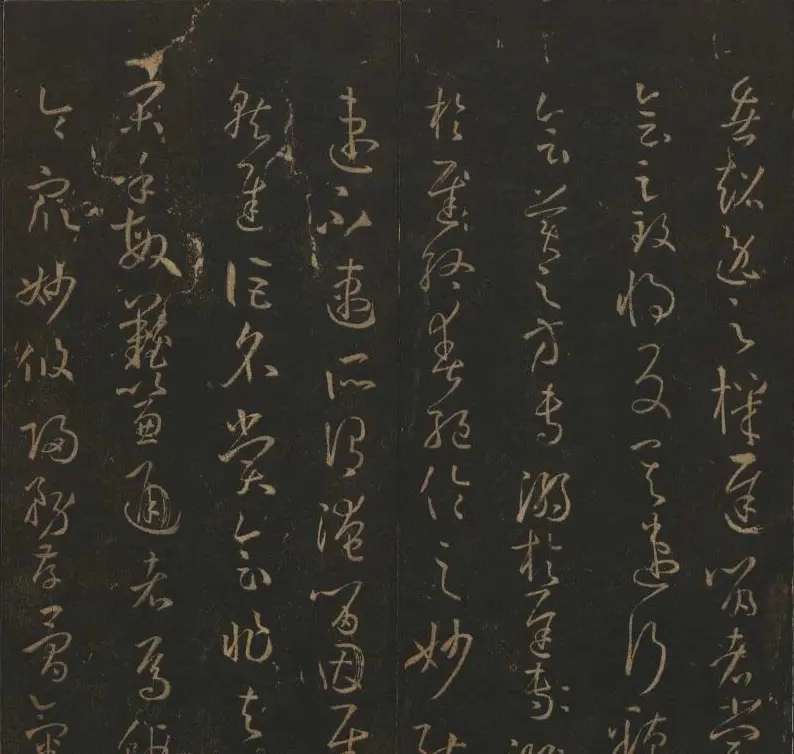 者超逸之機遲留者賞
會之致將反其速行臻
會美之方專溺於遲專溺
於遲終爽絕倫之妙能
速不速所謂淹留因遲
就遲詎名賞會非其
閑手敏難以兼通者焉假
令衆妙攸歸務存骨氣